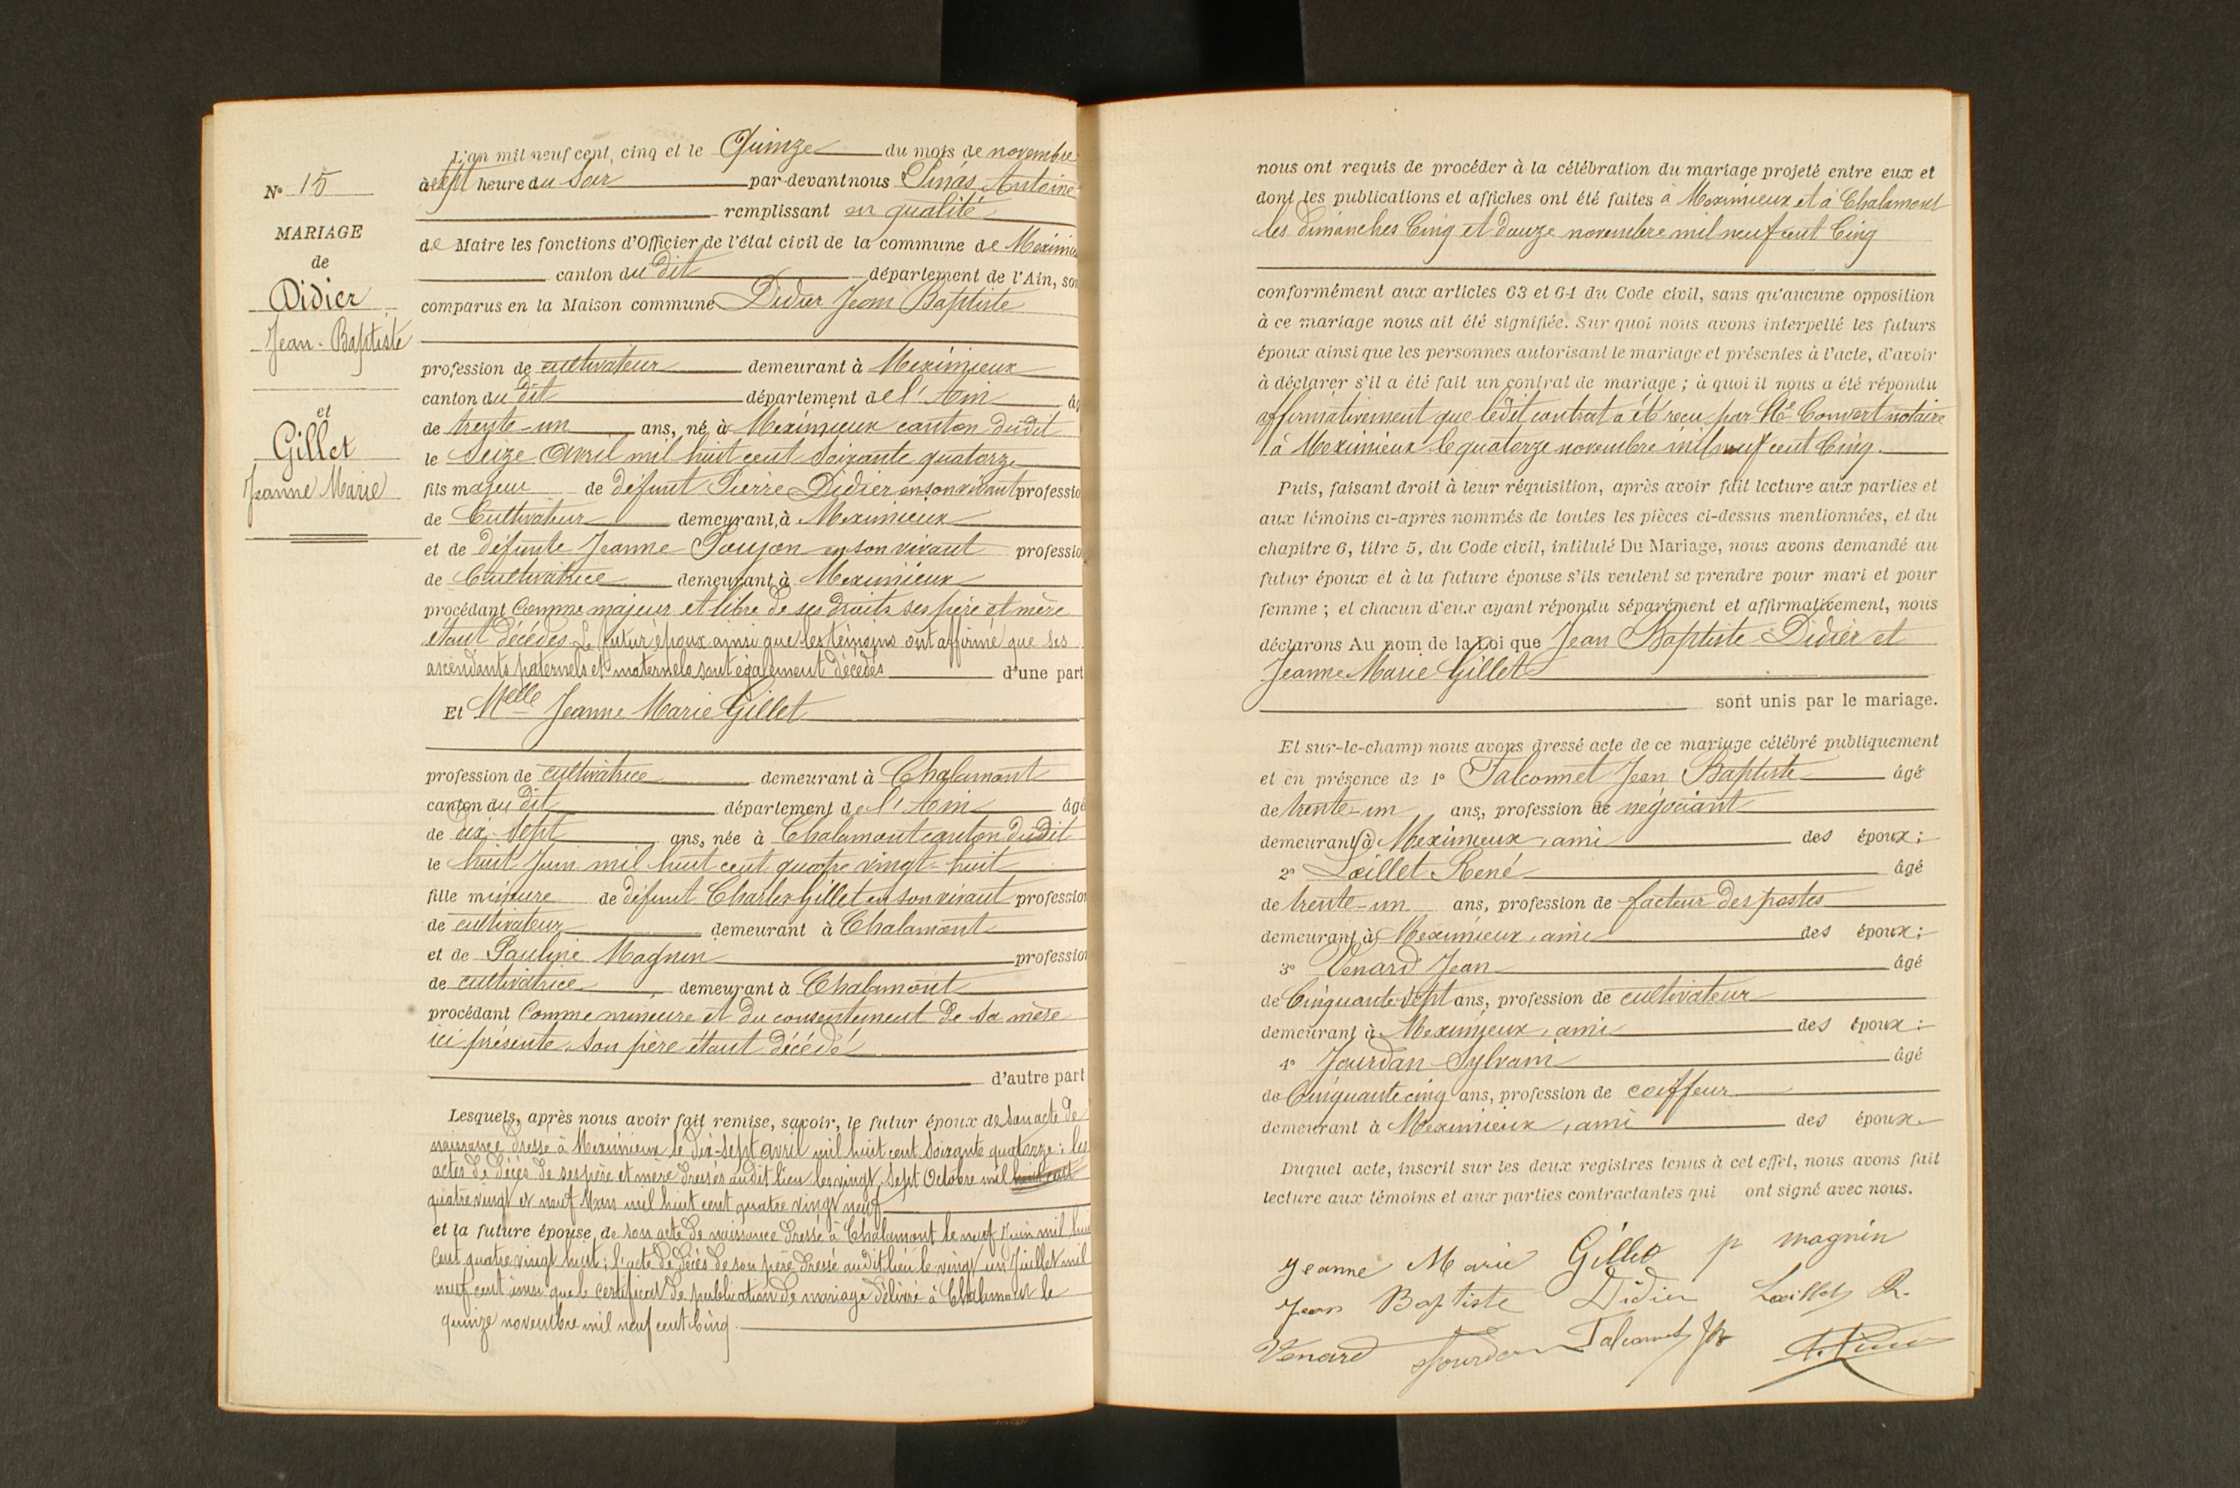 N° 15
MARIAGE
de
Didier
Jean-Baptiste
et
Gillet
Jeanne Marie
L'an mil neuf cent, cinq et le Quinze du mois de novembre
à sept heure du Soir par-devant nous Antoine
remplissant en qualité
de Maire les fonctions d'Officier de l'état civil de la commune de Meximieu
canton du dit département de l'Ain, son
comparus en la Maison commune Didier Jean Baptiste
profession de cultivateur demeurant à Meximieux
canton du dit département de l'Ain âg
de trente-un ans, né à Meximieux canton dudit
le Seize Avril mil huit cent soixante quatorze
fils majeur de défunt Pierre Didier en son vivant professio
de Cultivateur demeurant à Meximieux
et de défunte Jeanne en son vivant professio
de Cultivatrice demeurant à Meximieux
procédant Comme majeur et libre de ses droits ses père et mère
étant décédés. Le futur époux ainsi que les témoins ont affirmé que ses
ascendants paternels et maternels sont également décédés d'une part
Et Melle Jeanne Marie Gillet
profession de cultivatrice demeurant à Chalamont
canton du dit département de l'Ain âgé
de dix-sept ans, née à Chalamont canton dudit
le huit Juin mil huit cent quatre vingt-huit
fille mineure de défunt Charles Gillet en son vivant profession
de cultivateur demeurant à Chalamont
et de Pauline Magnin profession
de cultivatrice demeurant à Chalamont
procédant Comme mineure et du consentement de sa mère
ici présente, son père étant décédé
d'autre part
Lesquels, après nous avoir fait remise, savoir, le futur époux de son acte de
naissance dressé à Meximieux le dix-sept avril mil huit cent soixante quatorze ; les
actes de décès de ses père et mère dressés audit lieu les vingt-sept Octobre mil huit cent
quatre vingt et neuf Mars mil huit cent quatre vingt neuf
et la future épouse de son acte de naissance dressé à Chalamont le neuf Juin mil huit
cent quatre vingt huit ; l'acte de décès de son père dressé audit lieu le vingt un Juillet mil
neuf cent ainsi que le certificat de publication de mariage délivré à Chalamont le
quinze novembre mil neuf cent Cinq
nous ont requis de procéder à la célébration du mariage projeté entre eux et
dont les publications et affiches ont été faites à Meximieux et à Chalamont
les dimanches Cinq et douze novembre mil neuf cent Cinq
conformément aux articles 63 et 64 du Code civil, sans qu'aucune opposition
à ce mariage nous ait été signifiée. Sur quoi nous avons interpellé les futurs
époux ainsi que les personnes autorisant le mariage et présentes à l'acte, d'avoir
à déclarer s'il a été fait un contrat de mariage ; à quoi il nous a été répondu
affirmativement que ledit contrat a été recu par Me Convert notaire
à Meximieux le quatorze novembre mil neuf cent Cinq.
Puis, faisant droit à leur réquisition, après avoir fait lecture aux parties et
aux témoins ci-après nommés de toutes les pièces ci-dessus mentionnées, et du
chapitre 6, titre 5, du Code civil, intitulé Du Mariage, nous avons demandé au
futur époux et à la future épouse s'ils veulent se prendre pour mari et pour
femme ; et chacun d'eux ayant répondu séparément et affirmativement, nous
déclarons Au nom de la Loi que Jean Baptiste Didier et
Jeanne Marie Gillet
sont unis par le mariage.
Et sur-le-champ nous avons dressé acte de ce mariage célébré publiquement
et en présence de 1° Falconnet Jean Baptiste âgé
de trente-un ans, profession de négociant
demeurant à Meximieux, ami des époux ;
2° Lœillet René âgé
de trente-un ans, profession de facteur des postes
demeurant à Meximieux, ami des époux ;
3° Venard Jean âgé
de Cinquante-sept ans, profession de cultivateur
demeurant à Meximieux, ami des époux ;
4° Jourdan Sylvain âgé
de Cinquante cinq ans, profession de coiffeur
demeurant à Meximieux, ami des époux.
Duquel acte, inscrit sur les deux registres tenus à cet effet, nous avons fait
lecture aux témoins et aux parties contractantes qui ont signé avec nous.
Jeanne Marie Gillet p magnin
Jean Baptiste Didier Lœillet R.
Venard Jourdan Falconnet